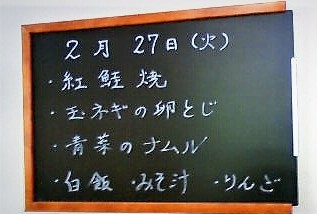 2月27日(火)
・紅鮭焼
・玉ネギの卵とじ
・青菜のナムル
・白飯 ・みそ汁 ・りんご